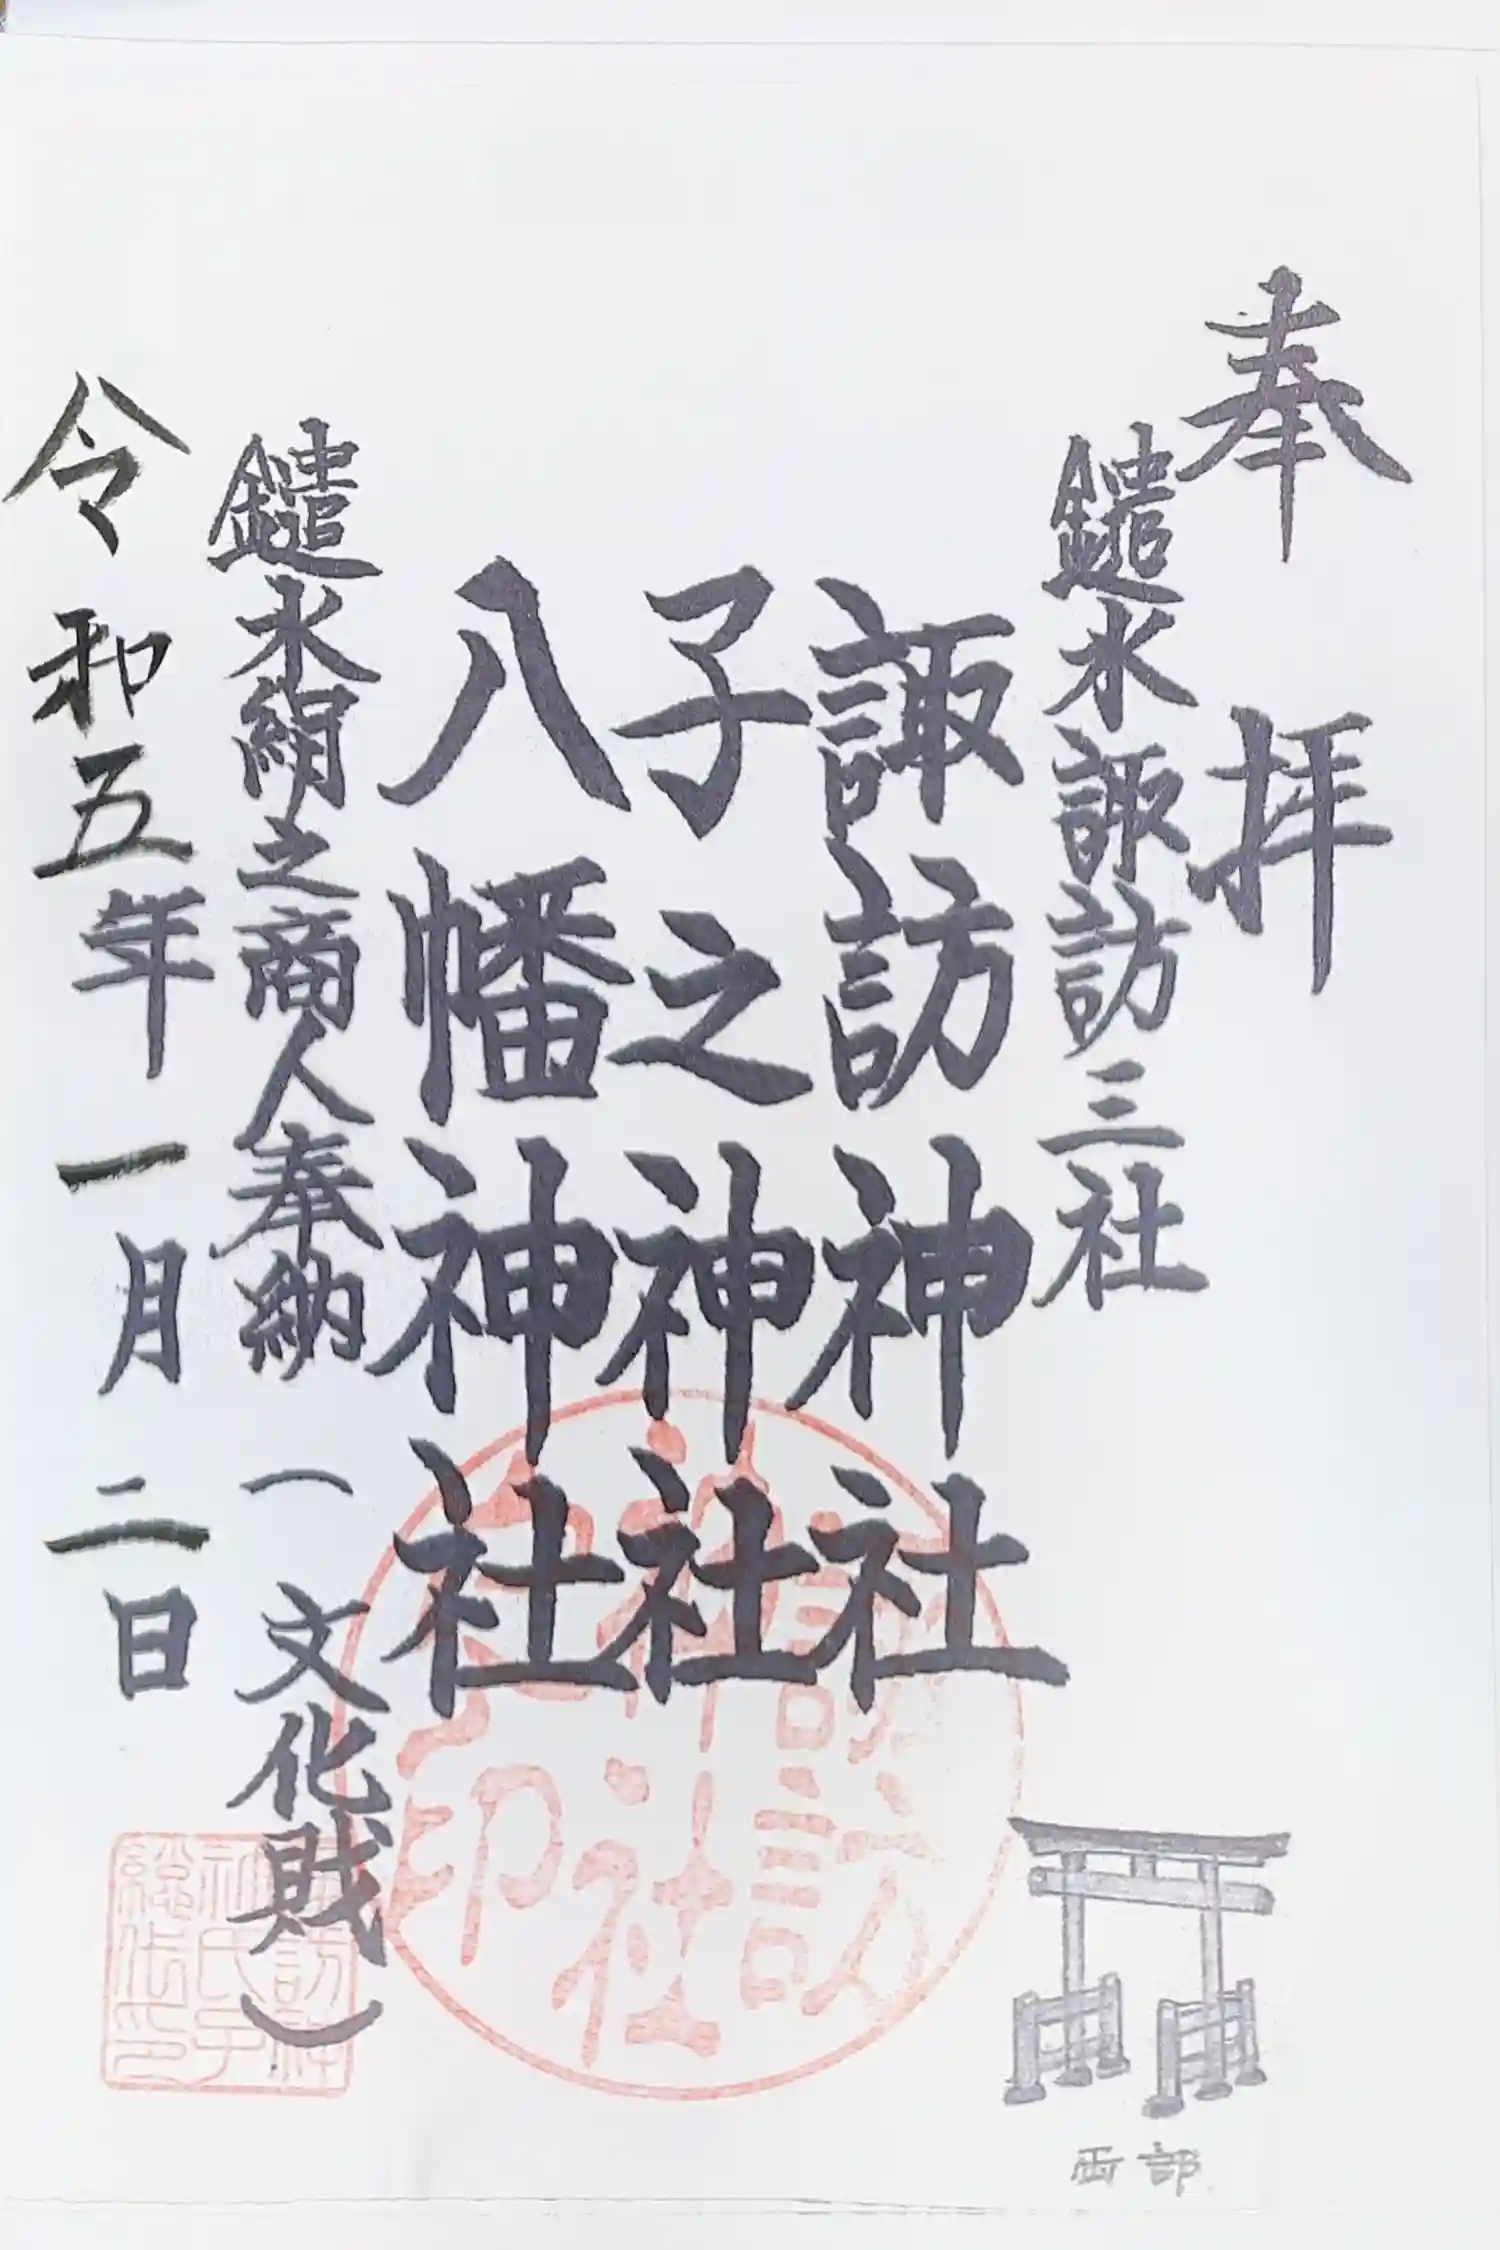 奉拝
鑓水諏訪三社
諏訪神社
子之神社
八幡神社
鑓水絹之商人奉納（文化財）
令和五年一月二日
両部